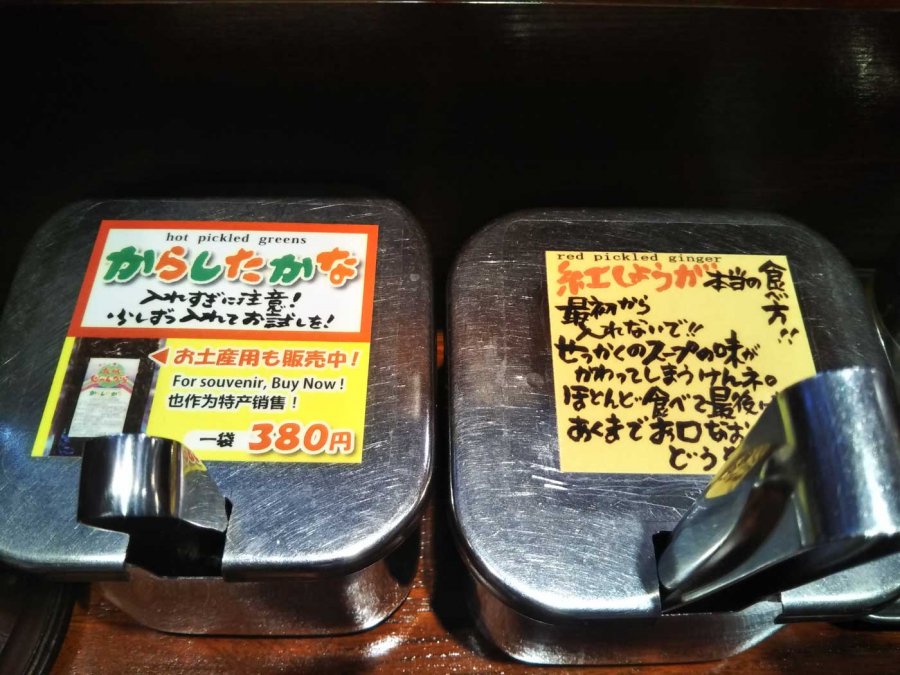 hot pickled greens
からしたかな
入れすぎに注意!
少しずつ入れてお試しを!
お土産用も販売中!
For souvenir, Buy Now!
也作为特产销售!
一袋 380円
red pickled ginger
紅しょうが 本当の食べ方!!
最初から
入れないで!!
せっかくのスープの味が
かわってしまうけんネ。
ほとんど食べて最後に
あくまでお口なお
どうぞ